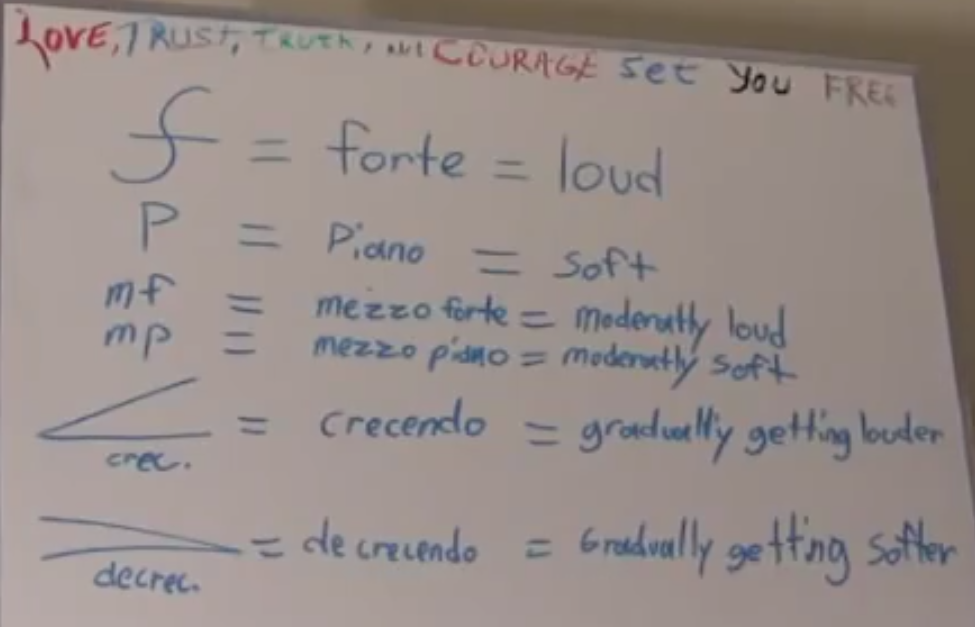 LOVE, TRUST, TRUTH, COURAGE Set You FREE
f = forte = loud
P = Piano = Soft
mf = mezzo forte = moderatly loud
mp = mezzo piano = moderatly soft
= crecendo = gradually getting louder
crec.
= decrecendo = Gradually getting Softer
decrec.